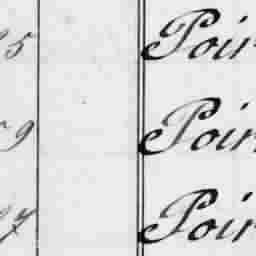 5 Poir
9 Poir
7 Poir